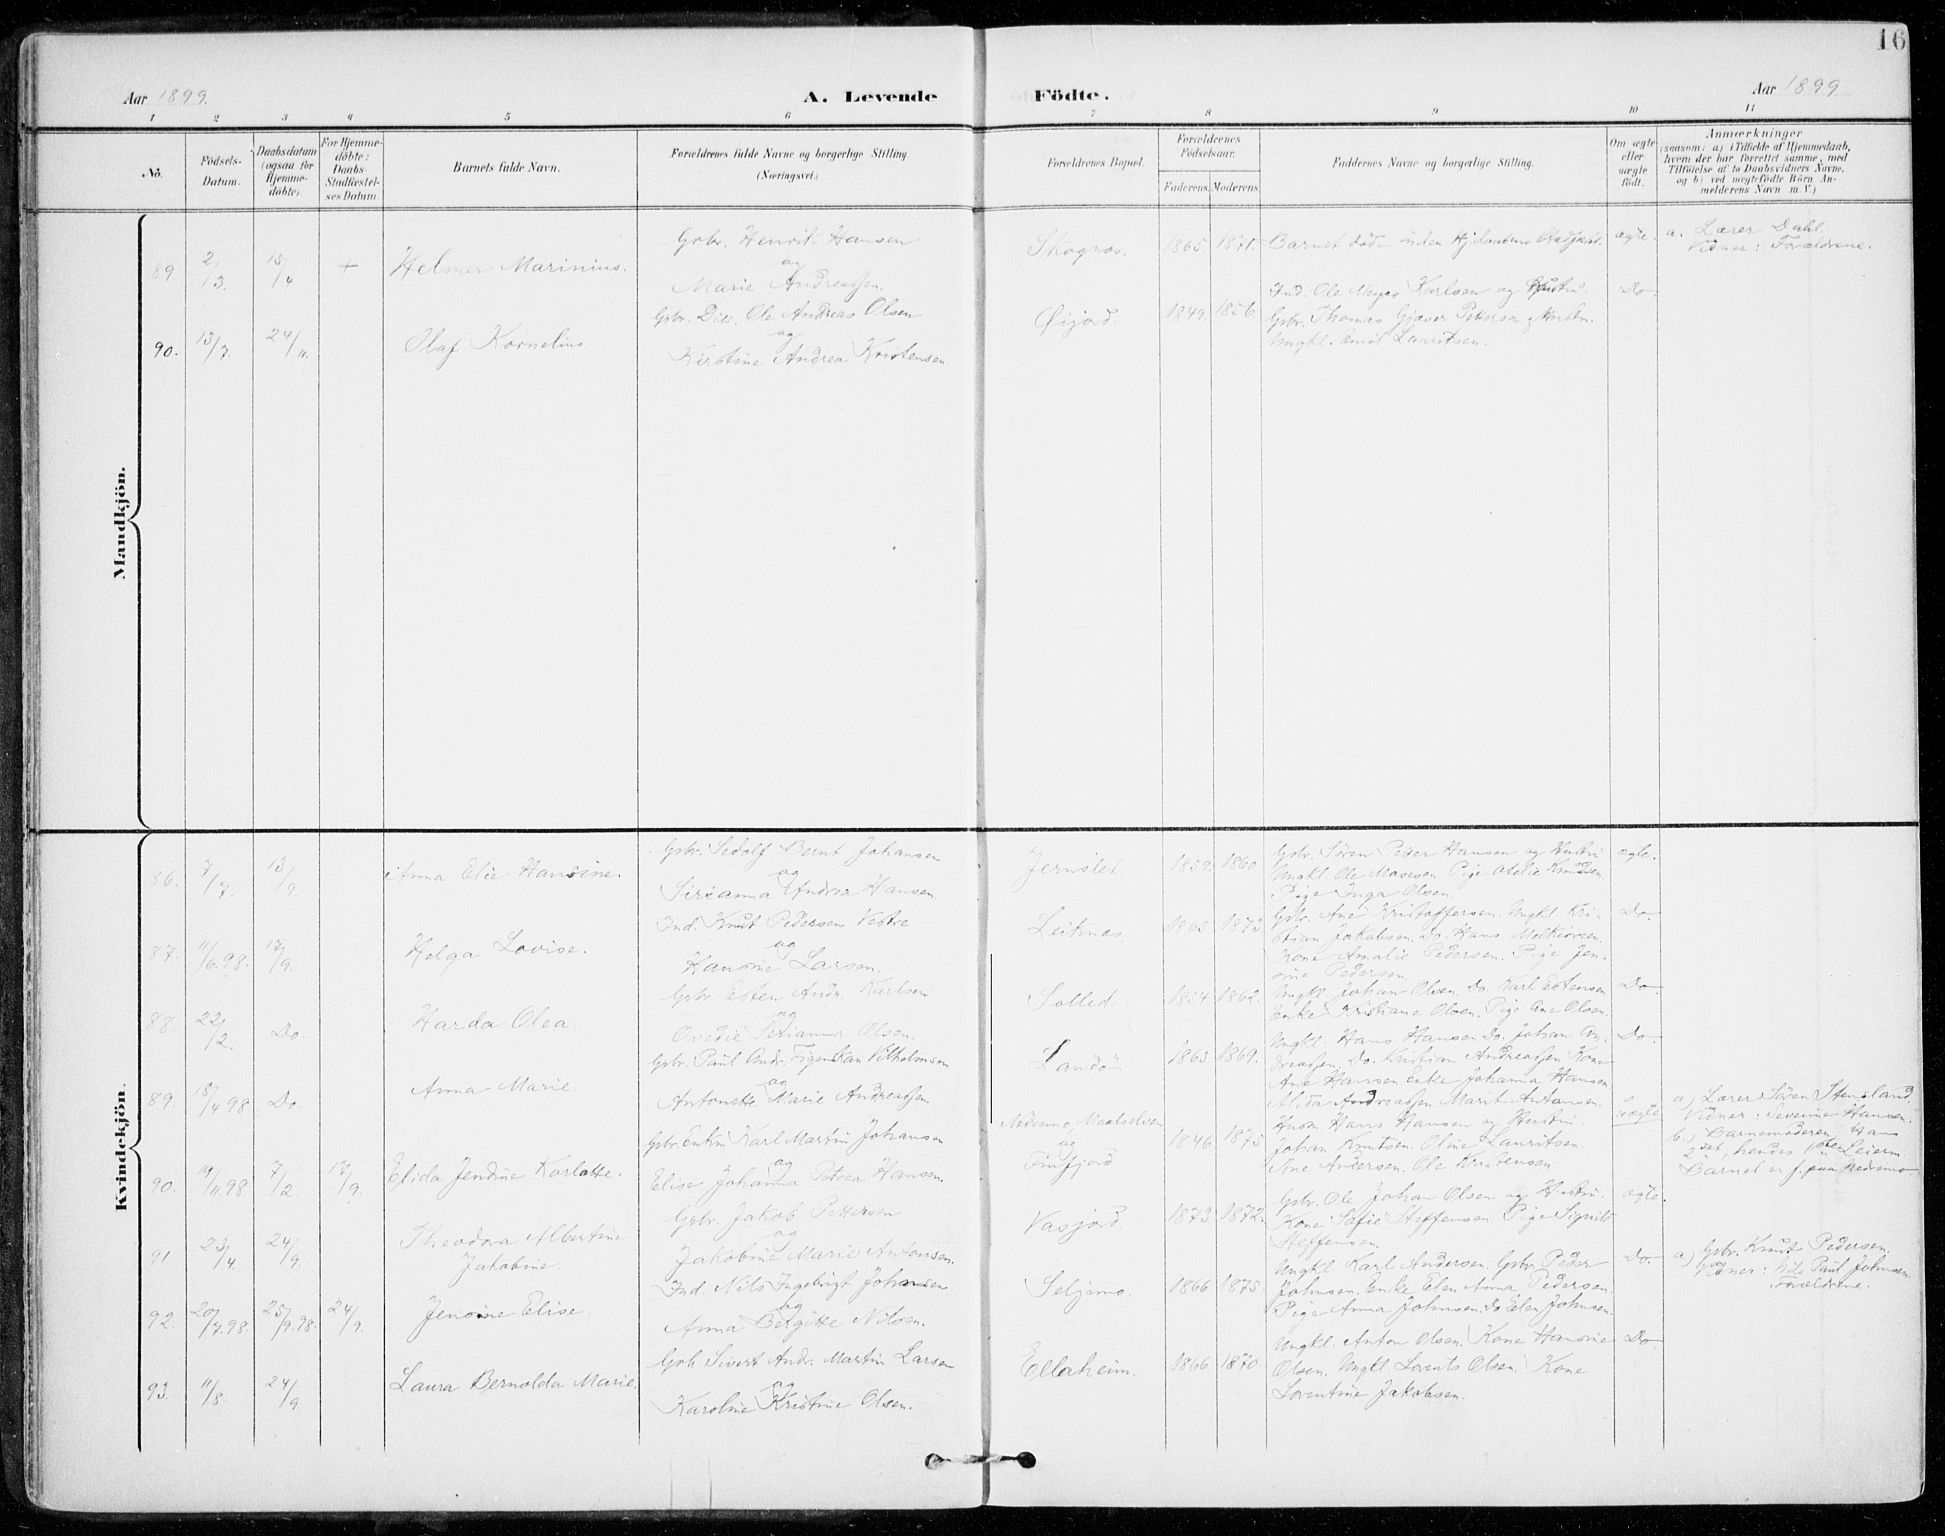 16
Aar 1899.
A. Levende
Födte.
Aar 1899
1 2 3 4 5 6 7 8 9 10 11
No.
Födsels-
Datum.
Daabsdatum
(ogsaa for
Hjemme-
döbte).
For Hjemme-
döbte:
Daabs-
Stadfæstel-
ses Datum.
Barnets fulde Navn.
Forældrenes fulde Navne og borgerlige Stilling
(Næringsvei.)
Forældrenes Bopæl.
Forældrenes
Födselsaar.
Faderens. Moderens.
Faddernes Navne og borgerlige Stilling.
Om ægte
eller
uægte
födt.
Anmærkninger
(saasom: a) i Tilfælde af Hjemmedaab,
hvem der har forrettet samme, med
Tilföielse af to Daabsvidners Navne,
og b) ved uægtefödte Börn An-
melderens Navn m. V.)
Mandkjön.
89. 2/3. 15/4 + Helmer Marinius.
Gbr. Henrik Hansen
og
Marie Andreassen.
Skognes. 1865 1871. Barnet död inden ægte.
a. Lærer Dahl.
Vidner: Forældrene.
90. 13/7. 24/11. Olaf Kornelius.
Gbr. Ole Andreas Olsen
og
Kirstine Andrea Kristensen
Öijord. 1849 1856.
Ind. Ole Meyer Karlsen og Hustru.
Gbr. Thomas Gjæver Pettersen & Hustru.
Ungkl. Emil Lauritsen.
Do.
Kvindekjön.
86. 7/7. 13/9. Anna Elie Hansine.
Gbr. Sedolf Bernt Johansen
og
Sirianna Andrea Hansen.
Jernslet. 1859. 1860
Gbr. Sören Peter Hansen og Hustru
Ungkl Ole Mosesen Pige Otelie Knudsen
Pige Inga Olsen.
ægte.
87. 11/6.98. 17/9. Helga Lovise.
Ind. Knut Pedersen Vestre
og
Hansine Larsen.
Leiknes 1865 1873.
Gbr. Ane Kristoffersen. Ungkl Kri-
stian Jakobsen. Do. Hans Melkiorsen.
Kone Amalie Pedersen. Pige Jen-
sine Pedersen
Do.
88. 22/2. Do. Harda Olea.
Gbr. Esten Andr. Karlsen
og
Ovedie Setianna Olsen.
Solled. 1854 1862.
Ungkl. Johan Olsen. Do. Karl Estensen
Enke Kristiane Olsen. Pige Ane Olsen.
Do.
89. 18/4 98 Do. Anna Marie.
Gbr. Paul Andr. Vilhelmsen
og
Antonette Marie Andreassen.
Landö. 1865 1869.
Ungkl. Hans Hansen Do. Johan An-
dreassen. Do. Kristian Andreassen Kone
Ane Hansen Enke Johanna Hansen
Alida Andreassen Marit Antonsen.
Do.
90. 19/11 98 7/2. 17/9. Elida Jendine Karlotte.
Gbr. Enkm. Karl Martin Johansen
og
Elise Johanna Petrea Hansen.
Nedremo, Maalselven
og
Finfjord
1846 1875.
Husm Hans Hansen og Hustru.
Johan Knutsen. Oline Lauritsen
Ane Andersen. Ole Kristensen.
uægte
a) Lærer Sören Stensland.
Vidner: Severine Hansen.
b.) Barnemoderen. Hans
2det, hendes 1ste Leierm.
Barnet er f. paa Nedremo
91 23/4. 24/9. Theodora Albertine
Jakobine.
Gbr. Jakob Pettersen
og
Jakobine Marie Antonsen.
Vasjord. 1873. 1872.
Gbr. Ole Johan Olsen og Hustru.
Kone Sofie Steffensen. Pige Sigrid
Steffensen.
ægte.
92. 20/7.98. 25/9.98. 24/9. Jensine Elise.
Ind. Nils Ingebrigt Johnsen
og
Anna Bergitte Nilsen.
Seljemo. 1866 1875.
Ungkl Karl Andersen. Gbr. Peder
Johnsen. Enke Elen Anna Pedersen.
Pige Anna Johnsen. Do Elen Johnsen.
Do.
a) Gbr. Knut Pedersen.
Vidner: Nils Paul Johnsen.
Forældrene.
93. 11/8 24/9. Laura Bernolda Marie.
Gbr. Sivert Andr. Martin Larsen
og
Karoline Kristine Olsen.
Ellaheim. 1866 1870
Ungkl. Anton Olsen. Kone Hansine
Olsen. Ungkl Lorents Olsen. Kone
Lorentine Jakobsen.
Do.